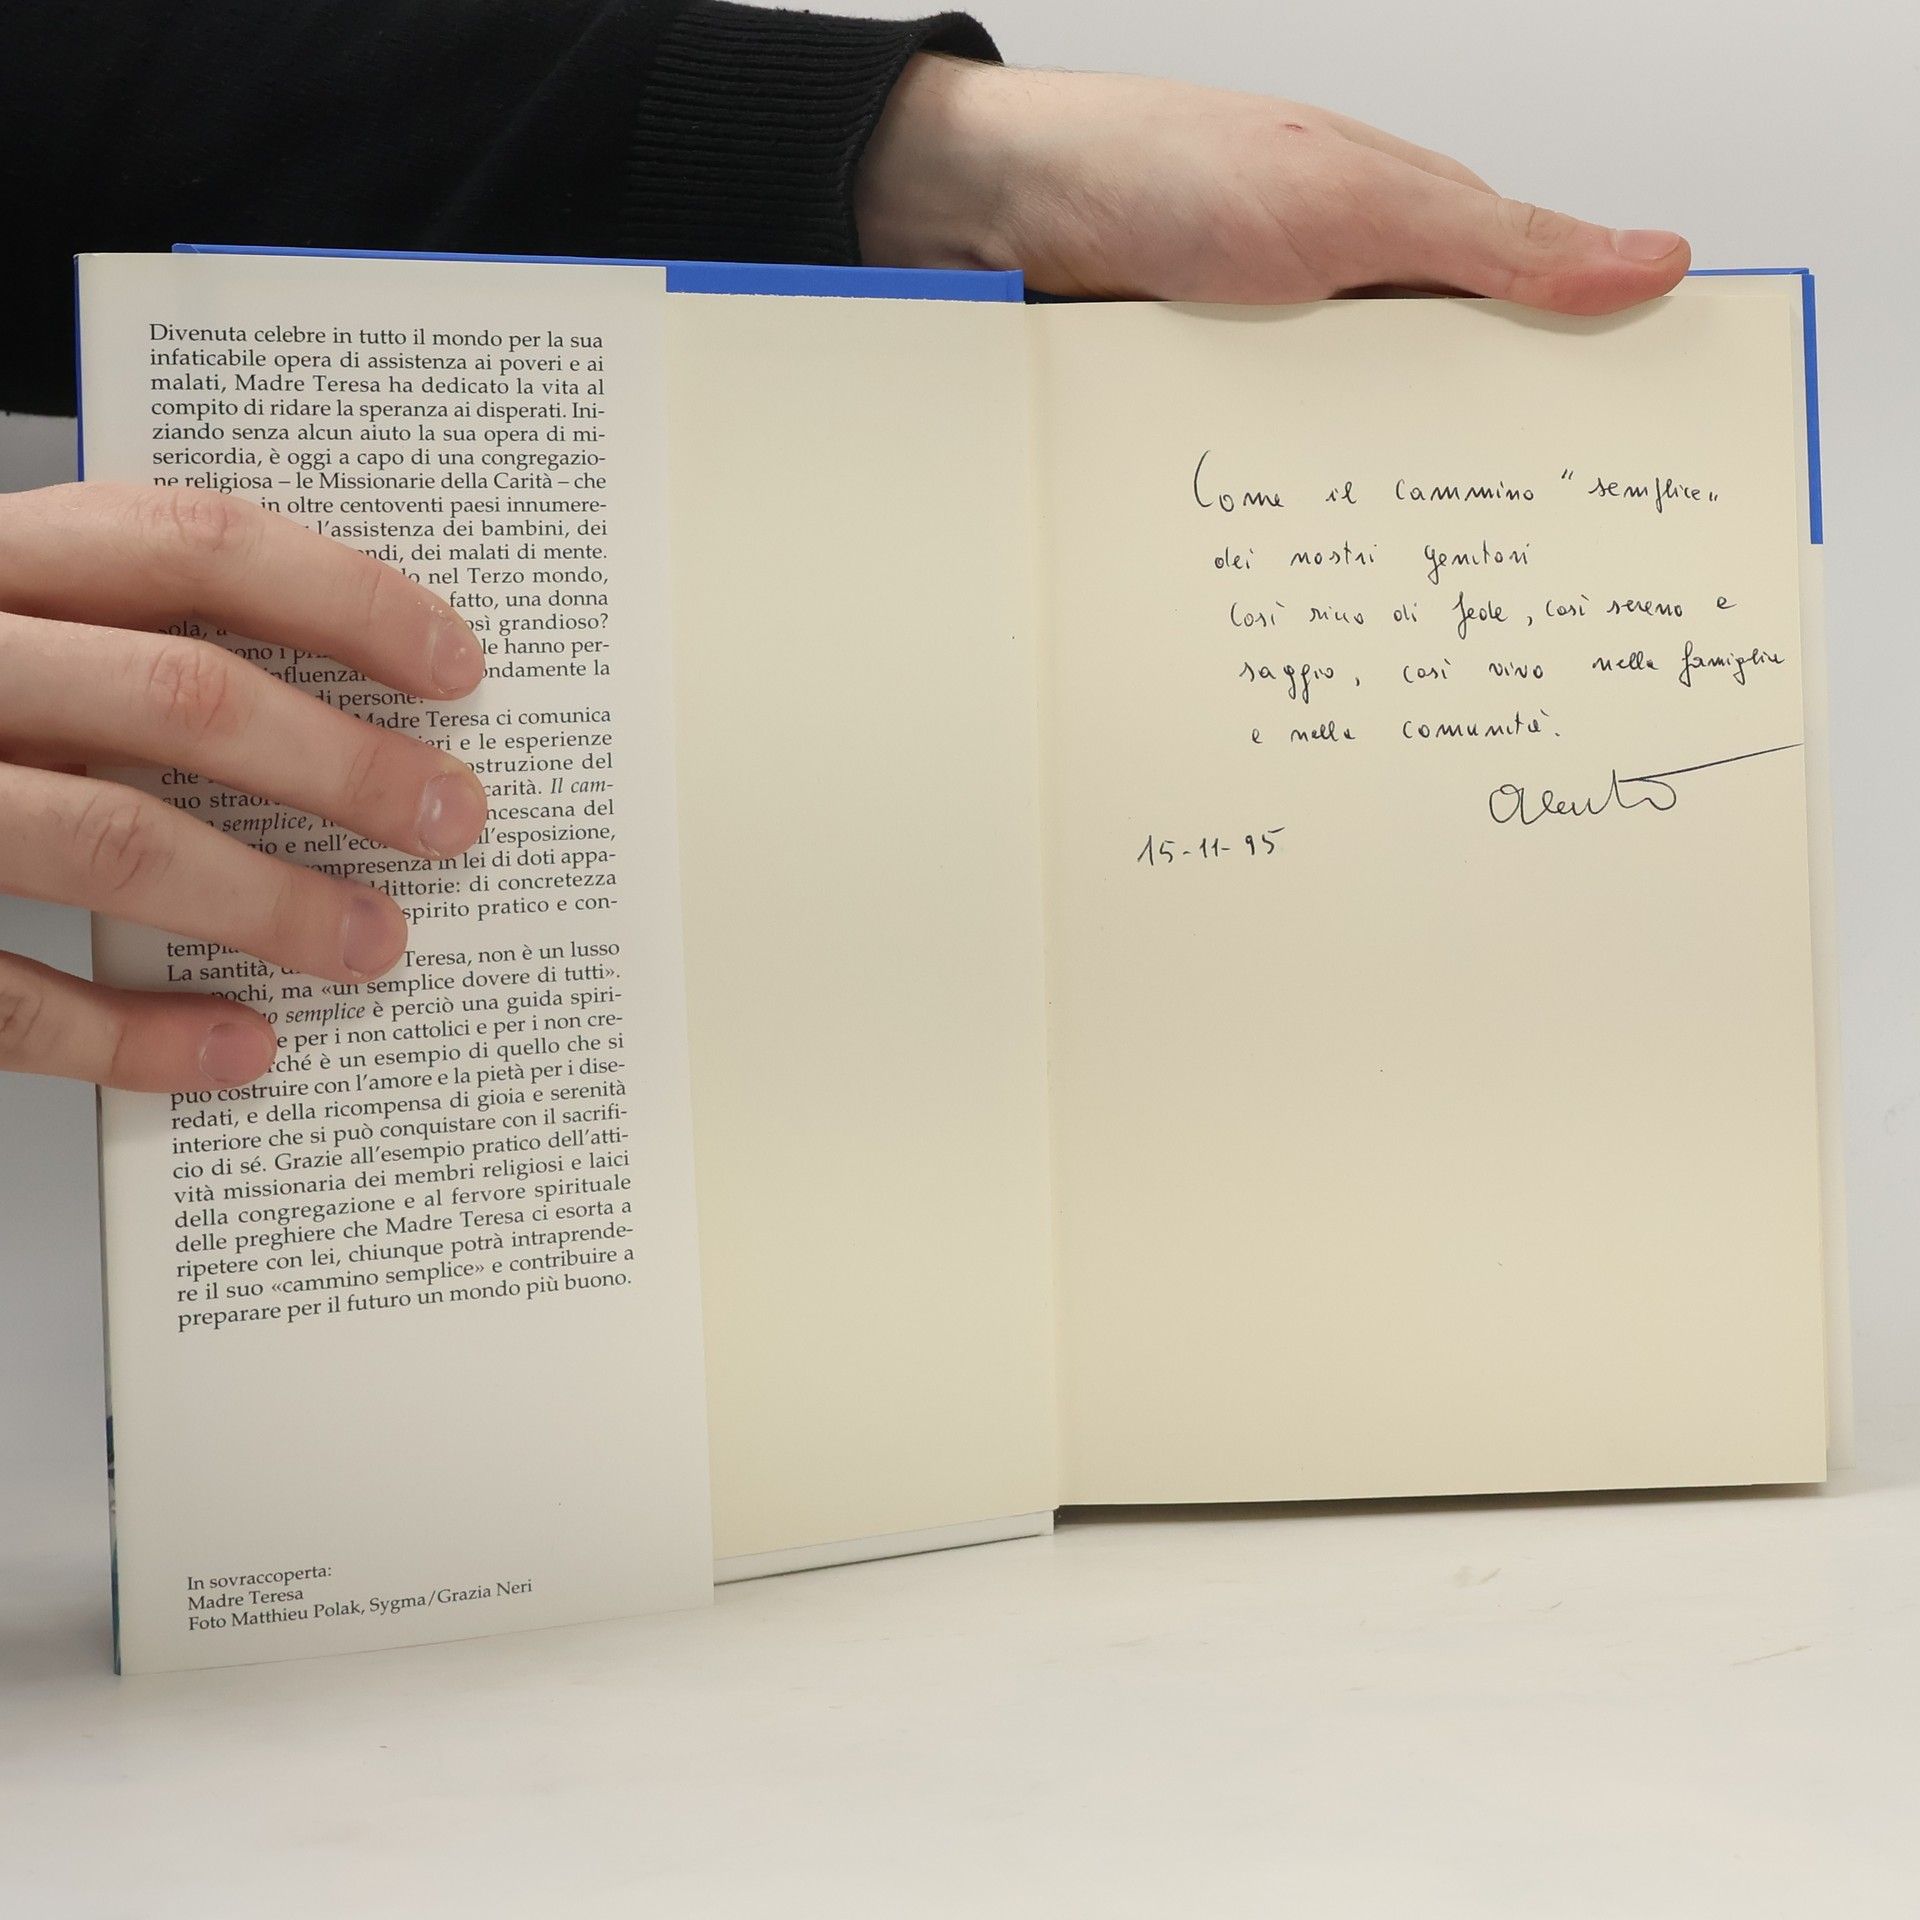 Divenuta celebre in tutto il mondo per la sua
infaticabile opera di assistenza ai poveri e ai
malati, Madre Teresa ha dedicato la vita al
compito di ridare la speranza ai disperati. Ini-
ziando senza alcun aiuto la sua opera di mi-
sericordia, è oggi a capo di una congregazio-
ne religiosa – le Missionarie della Carità – che
in oltre centoventi paesi innumere-
l'assistenza dei bambini, dei
dei malati di mente.
nel Terzo mondo,
fatto, una donna
grandioso?
le hanno per-
la
di persone.
Madre Teresa ci comunica
e le esperienze
che
suo carità. Il cam-
semplice, del
e nell' esposizione,
in lei di doti appa-
di concretezza
spirito pratico e con-
La santità, Teresa, non è un lusso
ma «un semplice dovere di tutti».
semplice è perciò una guida spiri-
e per i non cattolici e per i non cre-
è un esempio di quello che si
può costruire con l'amore e la pietà per i dise-
redati, e della ricompensa di gioia e serenità
interiore che si può conquistare con il sacrifi-
cio di sé. Grazie all'esempio pratico dell'atti-
vità missionaria dei membri religiosi e laici
della congregazione e al fervore spirituale
delle preghiere che Madre Teresa ci esorta a
ripetere con lei, chiunque potrà intraprende-
re il suo «cammino semplice» e contribuire a
preparare per il futuro un mondo più buono.
In sovraccoperta:
Madre Teresa
Foto Matthieu Polak, Sygma/Grazia Neri
Come il cammino "semplice"
dei nostri genitori
così ricco di fede, così sereno e
saggio, così vivo nella famiglia
e nella comunità.
15-11-95